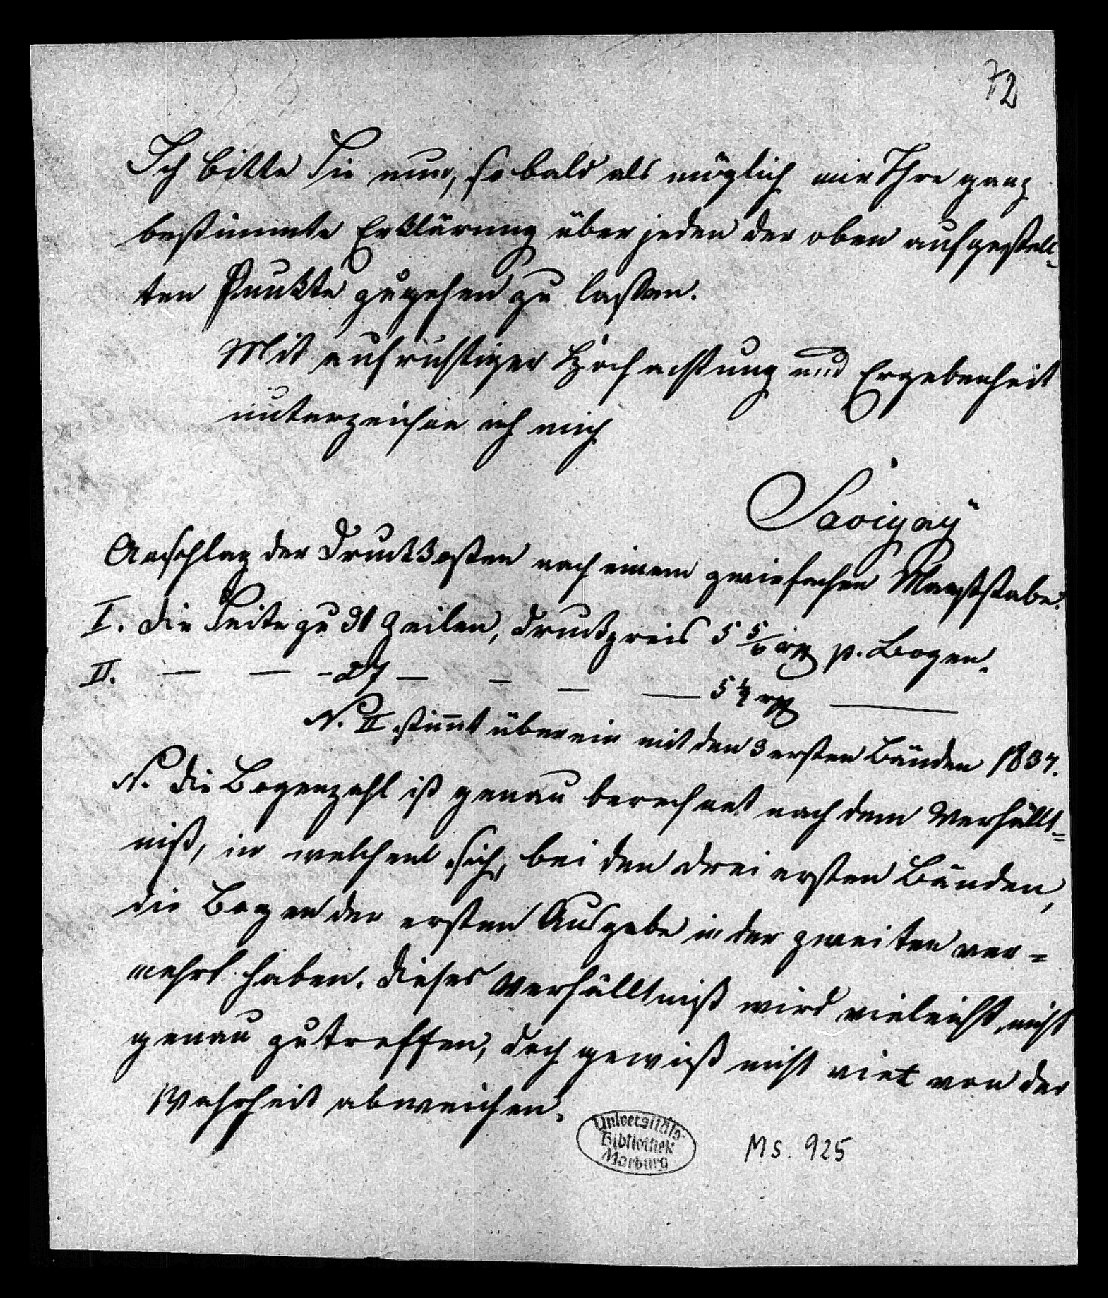 72
Ich bitte Sie nun, so bald als möglich mir Ihre ganz
bestimmte Erklärung über jeden der oben aufgestell-
ten Punkte zugehen zu lassen.
Mit aufrichtiger Hochachtung und Ergebenheit
unterzeichne ich mich
Savigny
Anschlag der Druckkosten nach einem zwiefachen Maaßstabe.
I. Die Seite zu 31 Zeilen, Druckpreis 5 5/6 p. Bogen.
II. — — - 27 — — — — 5 1/2 ———
N. II stimmt überein mit den 3 ersten Bänden 1834.
N. Die Bogenzahl ist genau berechnet nach dem Verhält-
niß, in welchem sich, bei den drei ersten Bänden,
die Bogen der ersten Ausgabe in der zweiten ver=
mehrt haben. Dieses Verhältniß wird vieleicht nicht
genau zutreffen, doch gewiß nicht viel von der
Wahrheit abweichen.
Universitäts-
Bibliothek
Marburg
Ms. 925